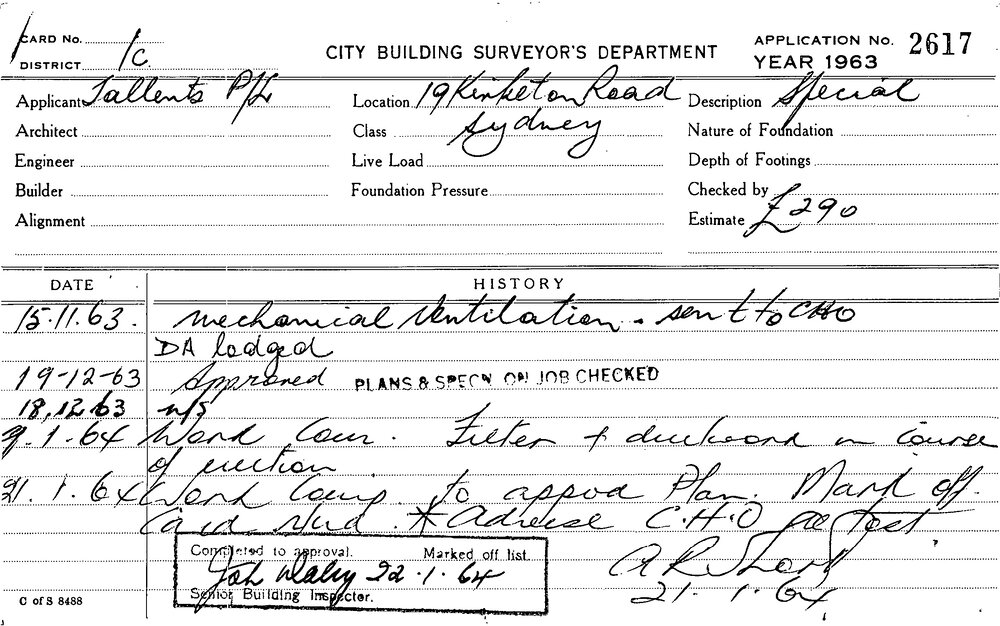 CARD No.
DISTRICT 1C
CITY BUILDING SURVEYOR'S DEPARTMENT
APPLICATION No. 2617
YEAR 1963
Applicant Tallents P/L
Location 19 Kinketon Road
Description Special
Architect
Class Sydney
Nature of Foundation
Engineer
Live Load
Depth of Footings
Builder
Foundation Pressure
Checked by
Alignment
Estimate £290
DATE HISTORY
15.11.63. Mechanical Ventilation. sent to CHO
DA lodged
19-12-63 Approved PLANS & SPECN ON JOB CHECKED
18.12.63 n/s
9.1.64 Work Com. Filter + ductwork in course
of erection
21.1.64 Work Comp. to appvd Plan. Mark off.
Card * Advise C.H.O test
Completed to approval. Marked off list.
22.1.64
Senior Building Inspector.
21.1.64
C of S 8488